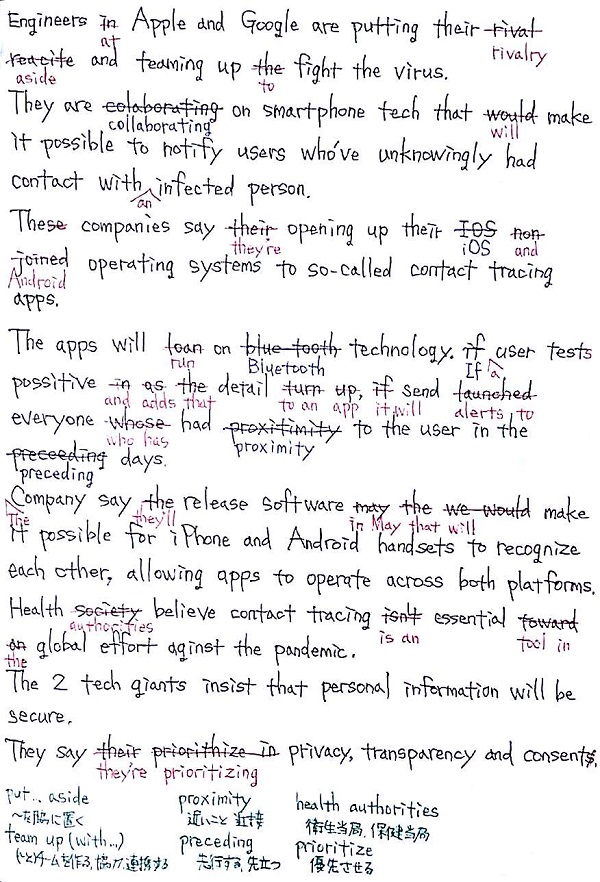 Engineers in Apple and Google are putting their rival
at
rivalry
reacite and teaming up the fight the virus.
aside
to
They are colaborating on smartphone tech that would make
collaborating
will
it possible to notify users who've unknowingly had
contact with infected person.
an
These companies say their opening up their IOS non
they're
iOS
and
joined operating systems to so-called contact tracing
Android
apps.
The apps will loan on blue tooth technology. if user tests
run
Bluetooth
If a
possitive in as the detail turn up, if send launched
and adds that
to an app it will
alerts to
everyone whose had proxitimity to the user in the
who has
proximity
preceeding days.
preceding
Company say the release software may the we would make
The
they'll
in May that will
it possible for iPhone and Android handsets to recognize
each other, allowing apps to operate across both platforms.
Health society believe contact tracing isn't essential toward
authorities
is an
tool in
an global effort aginst the pandemic.
the
The 2 tech giants insist that personal information will be
secure.
They say their priorithize in privacy, transparency and consents.
they're prioritizing
put... aside
proximity
health authorities
～を脇に置く
近いこと 近接
衛生当局、保健当局
team up (with...)
preceding
prioritize
(～と)チームを作る、協力、連携する
先行する、先立つ
優先させる